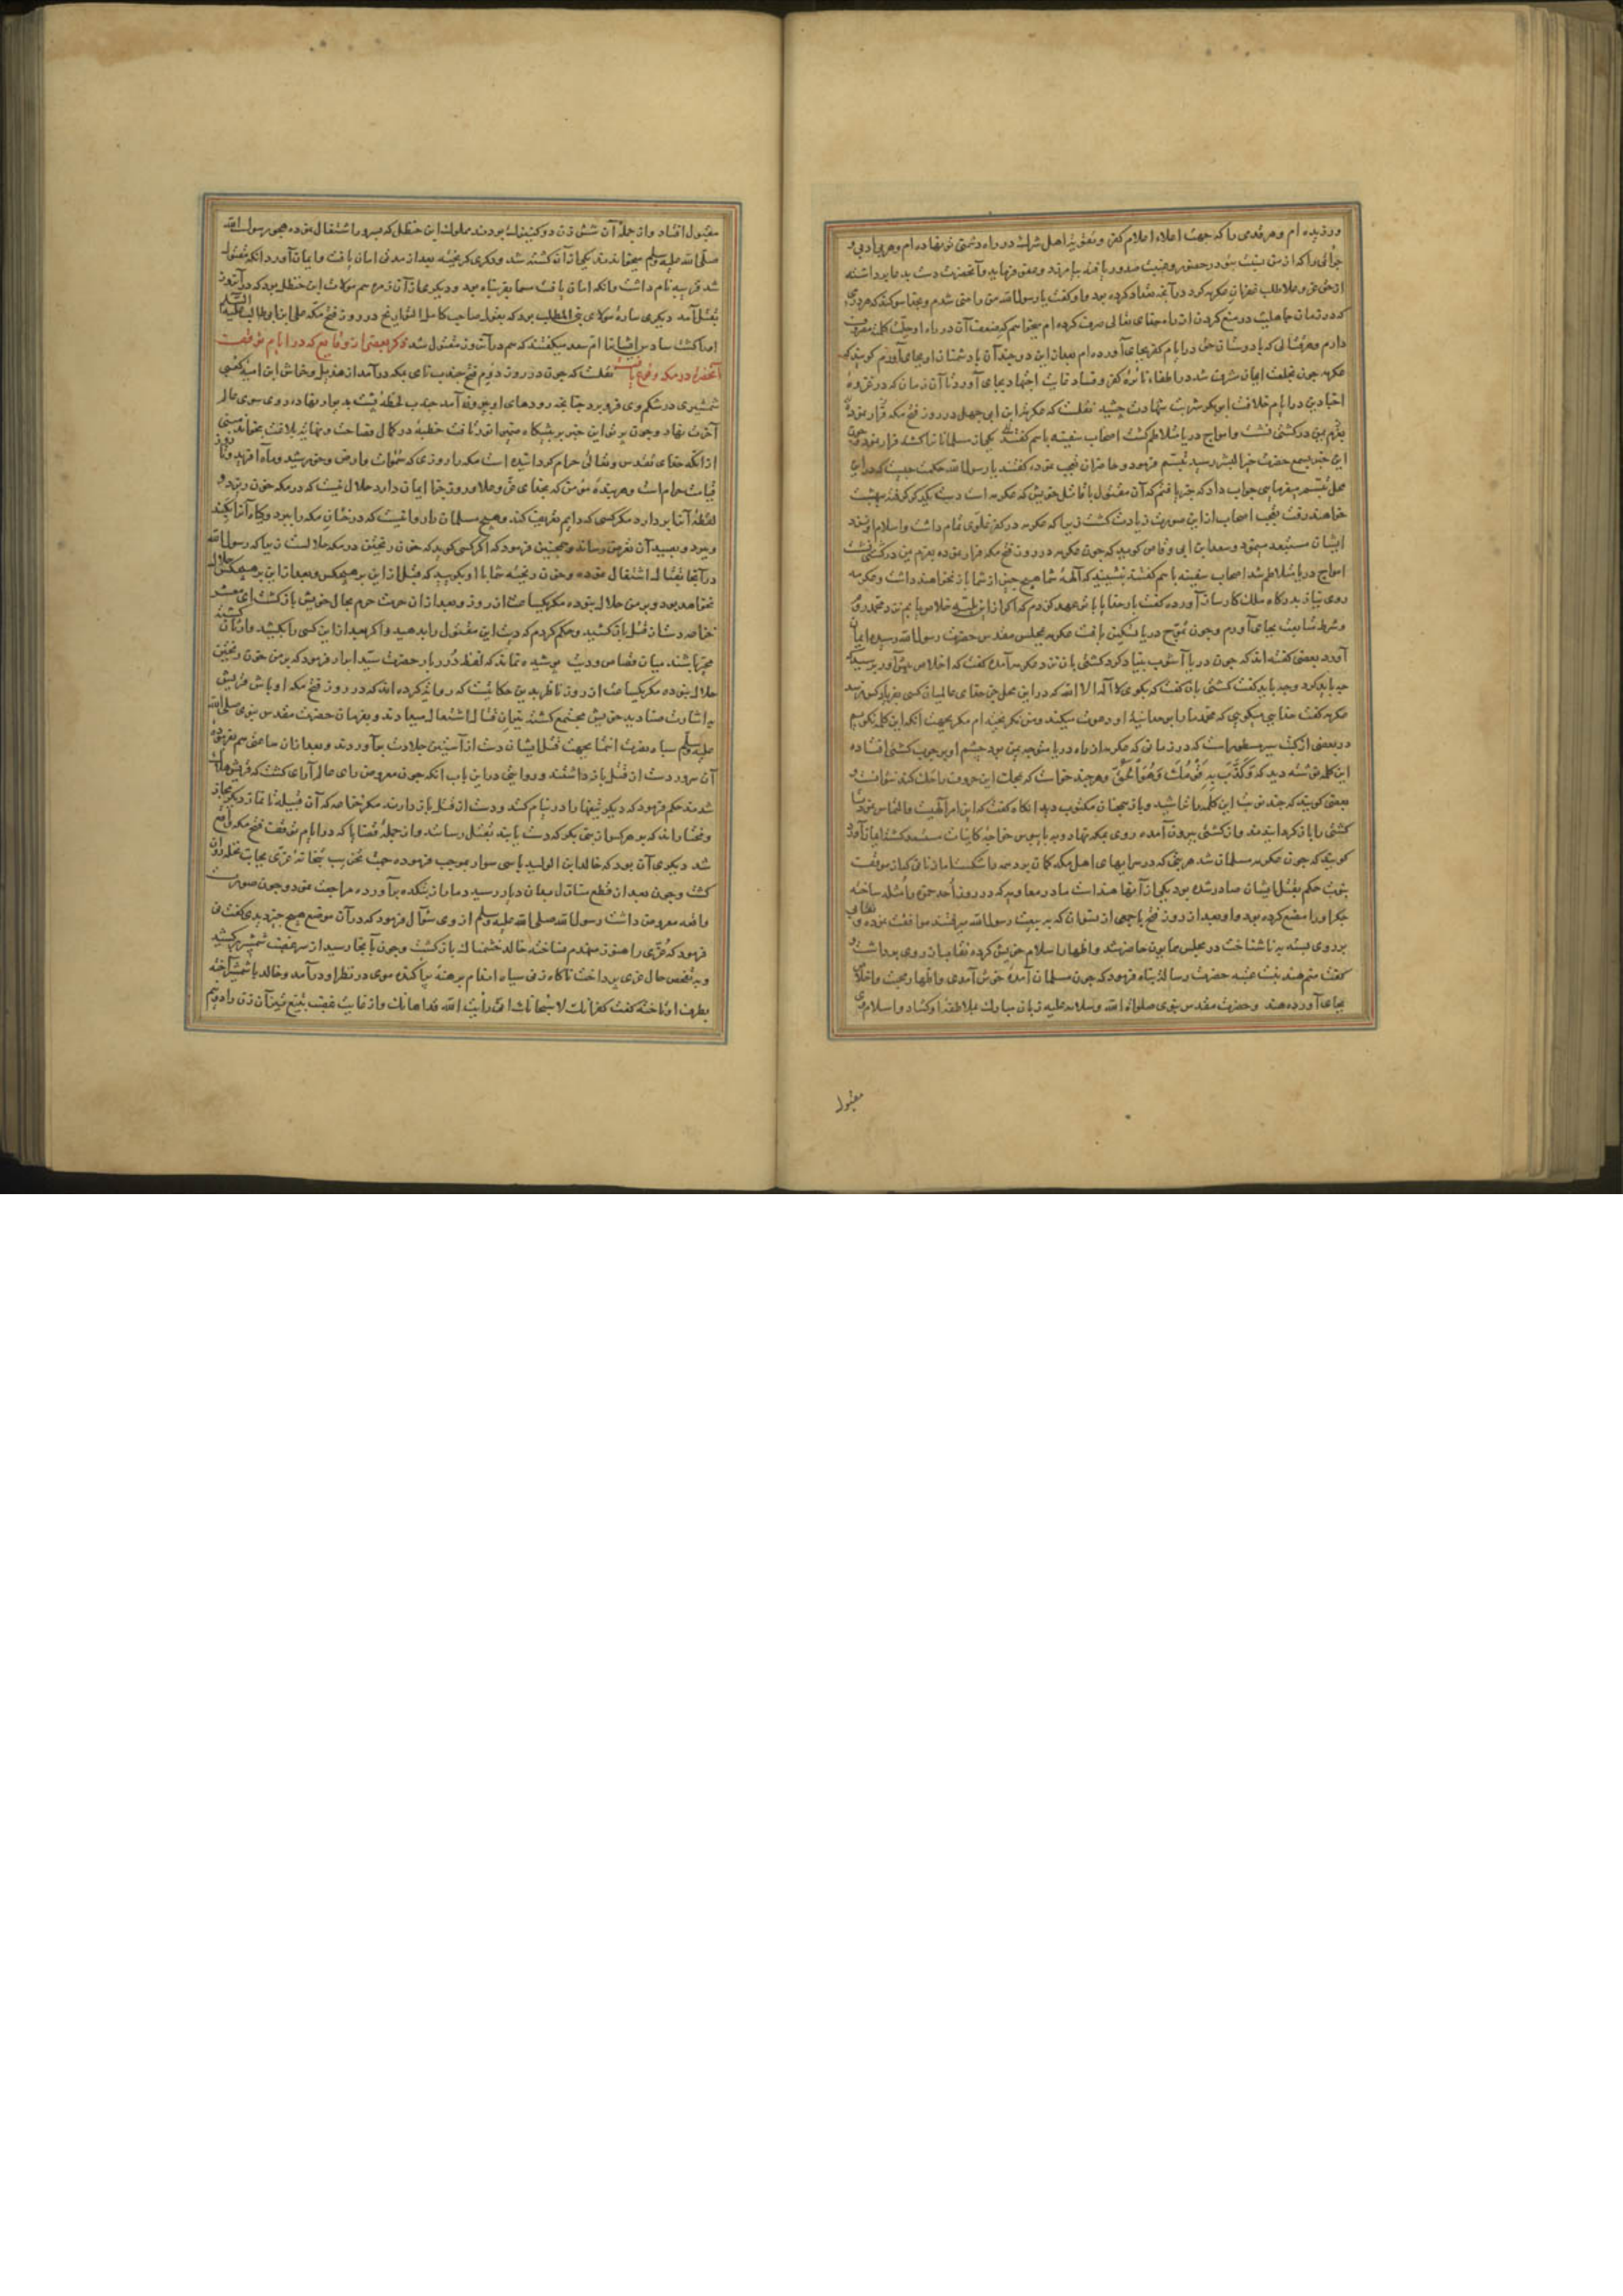 ورزیده ام وهر قدمی را که جهت اعلاء اعلام کفر و تقویة اهل شرک در راه دشمنی تو نهاده ام وهر بی ادبی و
جرأتی را که از من نسبت بتو در حضور و غیبت صدور یافته بیامرزند و عفو فرمایند و آنحضرت دست بدعا برداشته
از حق عز و علا طلب غفران عکرمه کرد در آنچه تعداد کرده بود و او گفت یا رسول الله من راضی شدم و بخدا سوگند که هر
که در زمان جاهلیت در منع کردن از راه خدای تعالی صرف کرده ام میخواهم که ضعف آن در راه او
دارم و هر قتالی که با دوستان حق در ایام کفر بجای آورده ام بعد از این دو چندان با دشمنان او بجای آورم گویند که
عکرمه چون بخلعت ایمان مشرف شد در اطفاء نائره کفر و فساد غایت اجتهاد بجای آورد تا آن زمان که در غزوه
اجنادین در ایام خلافت ابی بکر شربت شهادت چشید نقلست که عکرمة ابن ابی جهل در روز فتح مکه فرار نموده
بعزم یمن در کشتی نشست و امواج دریا متلاطم گشت اصحاب سفینه باهم گفتند یکی از مسلمانان را کشته فرار نمود چون
این خبر بسمع حضرت خیر البشر رسید تبسم فرمود و حاضران تعجب نموده گفتند یا رسول الله حکمت چیست که در این
محل تبسم میفرمایی جواب داد که چنین یافتم که آن مقتول با قاتل خویش که عکرمه است دست یکدیگر گرفته ببهشت
خواهند رفت تعجب اصحاب از این صورت زیادت گشت زیرا که عکرمه در کفر غلوی تمام داشت و اسلام او نزد
ایشان مستبعد مینمود و سعد ابن ابی وقاص گوید که چون عکرمه در روز فتح مکه فرار نموده بعزم یمن در کشتی نشست
امواج دریا متلاطم شد اصحاب سفینه باهم گفتند بنشینید که آلهه شما هیچ چیز از شما باز نخواهند داشت و عکرمه
روی نیاز بدرگاه ملک کارساز آورده گفت بار خدایا با تو عهد کردم که اگر از این بلیه خلاص یابم نزد محمد روم
و شرط متابعت بجای آورم و چون تموج دریا تسکین یافت عکرمه بمجلس مقدس حضرت رسول الله رسیده ایمان
آورد بعضی گفته اند که چون دریا آشوب بنیاد کرد کشتی بان نزد عکرمه آمده گفت که اخلاص پیش آور پرسید که
چه باید کرد و چه باید گفت کشتی بان گفت که بگوی لا اله الا الله که در این محل جز خدای عالمیان کسی بفریاد کس نرسد
عکرمه گفت
در بعضی از کتب سیر مسطور است که در زمانی که عکرمه از راه دریا متوجه یمن بود چشم او بر چوب کشتی افتاده
این کلمه نوشته دید که وَكَذَّبَ بِهِ قَوْمُكَ وَهُوَ الْحَقُّ و هر چند خواست که بحک این حروف را حک کند نتوانست و
بعضی گویند که چند نوبت این کلمه را تراشید و باز همچنان مکتوب دید انگاه گفت که این امر الهیست و التماس نمود تا
کشتی را باز گردانیدند و از کشتی بیرون آمده روی بمکه نهاد و به پابوس خواجه کاینات مستسعد گشته ایمان آورد
گویند که چون عکرمه مسلمان شد هر بتی که در سراهای اهل مکه کمان برد همه را شکست اما از زنانی که از موقف
نبوت حکم بقتل ایشان صادر شده بود یکی از آنها هند است مادر معاویه که در روز احد حمزه را مثله ساخته
جگر او را مضغ کرده بود و او بعد از روز فتح با جمعی از نسوان که به بیعت رسول الله میرفتند موافقت نموده و نقاب
بر روی بسته به ناشناخت در مجلس همایون حاضر شد و اظهار اسلام خویش کرده نقاب از روی برداشت و
گفت منم هند بنت عتبه حضرت رسالت پناه فرمود که چون مسلمان آمدی خوش آمدی و اظهار محبت و اخلاص
بجای آورده هند و حضرت مقدس نبوی صلواة الله وسلامه علیه زبان مبارک بملاطفه او گشاد و اسلام وی
مقبول
مقبول افتاد و از جمله آن شش زن دو کنیزک بودند مملوک ابن خطل که سرود اشتغال نموده هجو رسول الله
صلی الله علیه وسلم میخواندند یکی از آن کشته شد و دیگری گریخته بعد از مدتی امان یافت و ایمان آورد آنکه مقتول
شد قریبه نام داشت و آنکه امان یافت مسما بفرتنا بود و دیگری از آن زمره هم مولات ابن خطل بود که در آن روز
بقتل آمد دیگری ساره مولای بنی المطلب بود که بقول صاحب کامل التواریخ در روز فتح مکه علی ابن ابی طالب علیه السلام
او را کشت سادس ایشان ام سعد میگفتند که هم در آن روز مقتول شد ذکر بعضی از وقایع که در ایام توقف
آنحضرت در مکه وقوع یافت نقلست که چون در روز دوم فتح جندب نامی بمکه درآمد از هذیل و خراش ابن امیه کعبی
شمشیری در شکم وی فرو برد چنانچه رودهای او بیرون آمد جندب لحظه پشت بدیوار نهاده روی سوی عالم
آخرت نهاد و چون پرتو این خبر بر پیشگاه ضمیر انور تافت خطبه در کمال فصاحت و نهایت بلاغت بخواند مبنی
از آنکه خدای تقدس و تعالی حرام گردانیده است مکه را روزی که سموات و ارض و خورشید و ماه آفرید تا روز
قیامت حرام است و هر بنده مؤمن که بخدای عز و علا و روز جزا ایمان دارد حلال نیست که در مکه خون ریزد و
لقطه آنرا بردارد مگر کسی که دایم تعریف کند و هیچ مسلمان را روا نیست که درختان مکه را ببرد و گیاه آنرا بکند
و برود و بصید آن تعرض رساند و همچنین فرمود که اگر کسی گوید که خون ریختن در مکه حلالست زیرا که رسول الله
در آنجا بقتال اشتغال نموده و خون ریخته شما با او بگویید که قبل از این بر هیچکس و بعد از این بر هیچکس حلال
نخواهد بود و بر من حلال نبوده مگر یکساعت از روز و بعد از آن حرمت حرم بحال خویش باز گشت ای معشر
خزاعه دست از قتل باز کشید و حکم کردم که دیت این مقتول را بدهید و اگر بعد از این کسی را بکشید وارثان کشته
مخیر باشند میان قصاص و دیت پوشیده نماند که لفظ درربار حضرت سید ابرار فرمود که بر من خون ریختن
حلال نبوده مگر یکساعت از روز ناظر بدین حکایتست که روایت کرده اند که در روز فتح مکه اوباش قریش
به اشارت صنادید خویش مجتمع گشته نیران قتال اشتعال میدادند و بفرمان حضرت مقدس نبوی صلی الله
علیه وسلم سپاه نصرت انتما بجهت قتل ایشان دست از آستین جلادت برآوردند و بعد از آن ساعتی هم بفرموده
آن سرور دست از قتل باز داشتند و روایتی در این باب آنکه چون معروض رای عالم آرای گشت که قریش هلاک
شدند حکم فرمود که دیگر تیغها را در نیام کنند و دست از قتل باز دارند مگر خزاعه که آن قبیله تا نماز دیگر مجاز
و مختاراند که بر هر کس از بنی بکر که دست یابند بقتل رسانند و از جمله قضایا که در ایام توقف فتح مکه واقع
شد دیگری آن بود که خالد ابن الولید با سی سوار بموجب فرموده جهت تخریب بتخانه عزی بجانب نخله روان
گشت و چون بعد از قطع منازل بدان دیار رسید دمار از بتکده برآورده مراجعت نمود و چون صورت
واقعه معروض داشت رسول الله صلی الله علیه وسلم از وی سؤال فرمود که در آن موضع هیچ چیز دیدی گفت نی
فرمود که عزی را هنوز منهدم نساخته خالد خشمناک باز گشت و چون بآنجا رسید از سر غضب شمشیر برکشید
و به تفحص حال عزی پرداخت ناگاه زنی سیاه اندام برهنه پراکنده موی در نظر او درآمد و خالد با شمشیر آخته
بطرف او تاخته گفت کفرانک لا سبحانک انی رأیت الله قد اهانک و از غایت غضب بتیغ تیز آن زن را دو نیم